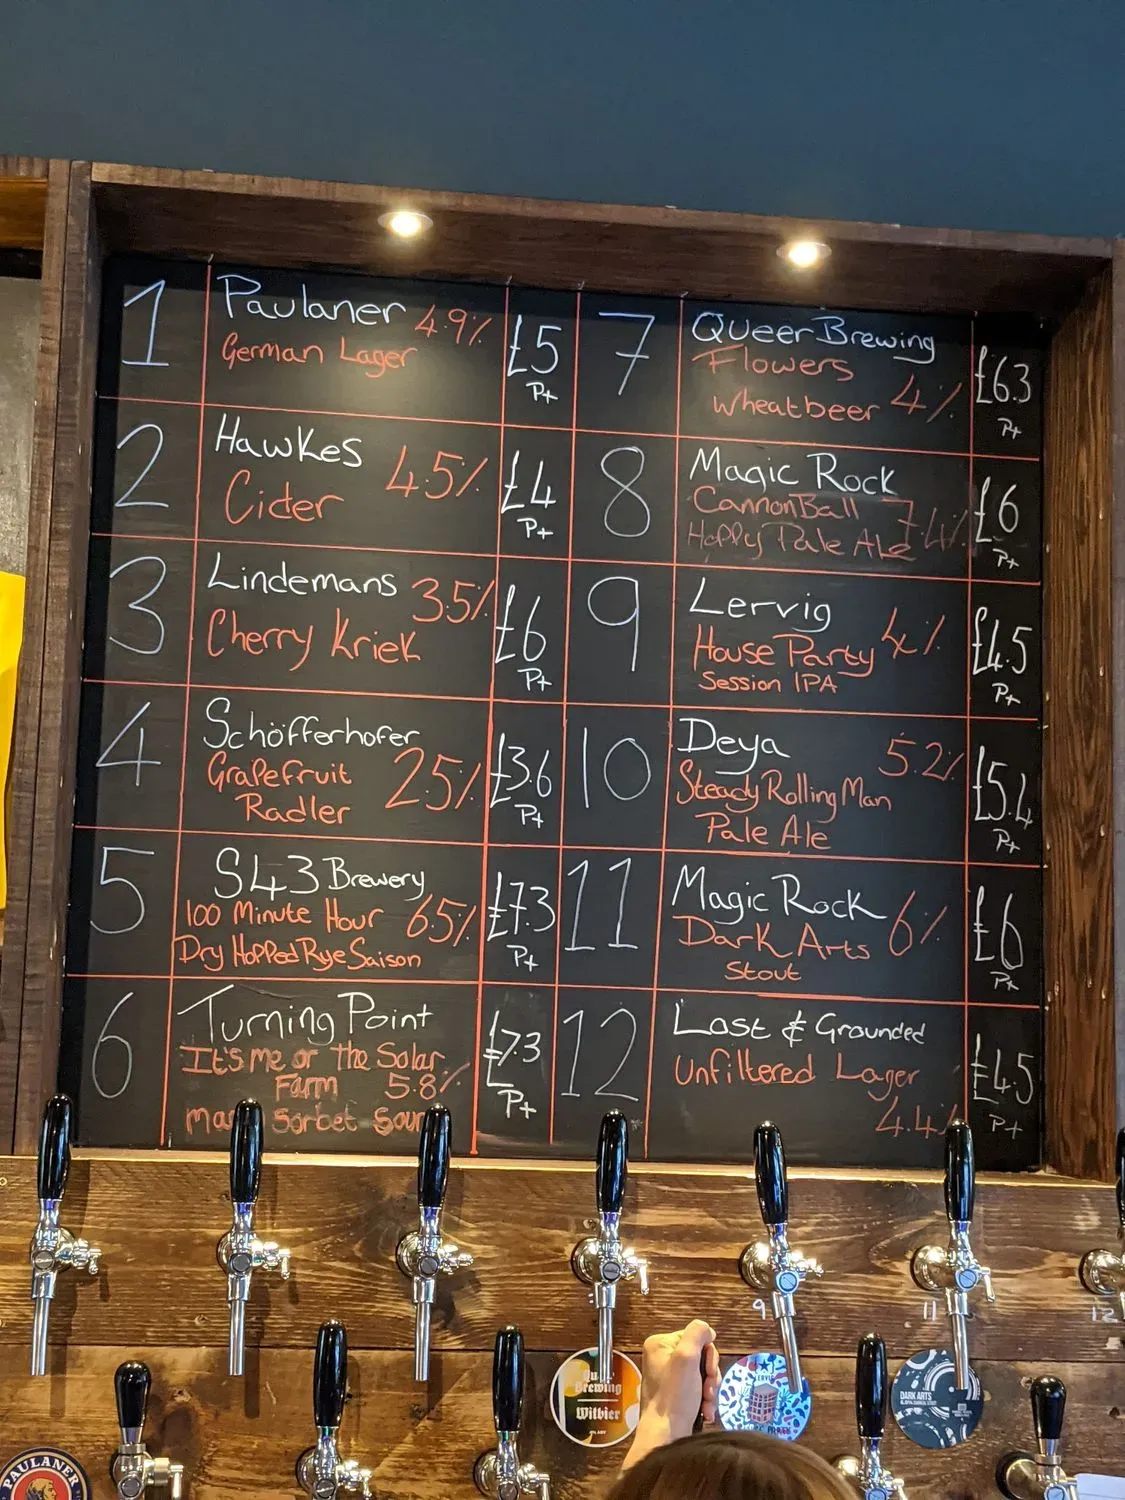 1
Paulaner 4.9%
German Lager
£5
P+
2
Hawkes
Cider 4.5%
£4
P+
3
Lindemans 3.5%
Cherry Kriek
£6
P+
4
Schöfferhofer
Grapefruit 2.5%
Radler
£3.6
P+
5
S43 Brewery
100 Minute Hour 6.5%
Dry Hopped Rye Saison
£7.3
P+
6
Turning Point
It's me or the Solar
Farm 5.8%
Sorbet Sour
£7.3
P+
7
Queer Brewing
Flowers
Wheatbeer 4%
£6.3
P+
8
Magic Rock
CannonBall 7.4%
Hoppy Pale Ale
£6
P+
9
Lervig
House Party 4%
Session IPA
£4.5
P+
10
Deya 5.2%
Steady Rolling Man
Pale Ale
£5.4
P+
11
Magic Rock
Dark Arts 6%
Stout
£6
P+
12
Lost & Grounded
Unfiltered Lager
4.4%
£4.5
P+
9
11
12
Brewing
Witbier
DARK ARTS
PAULANER